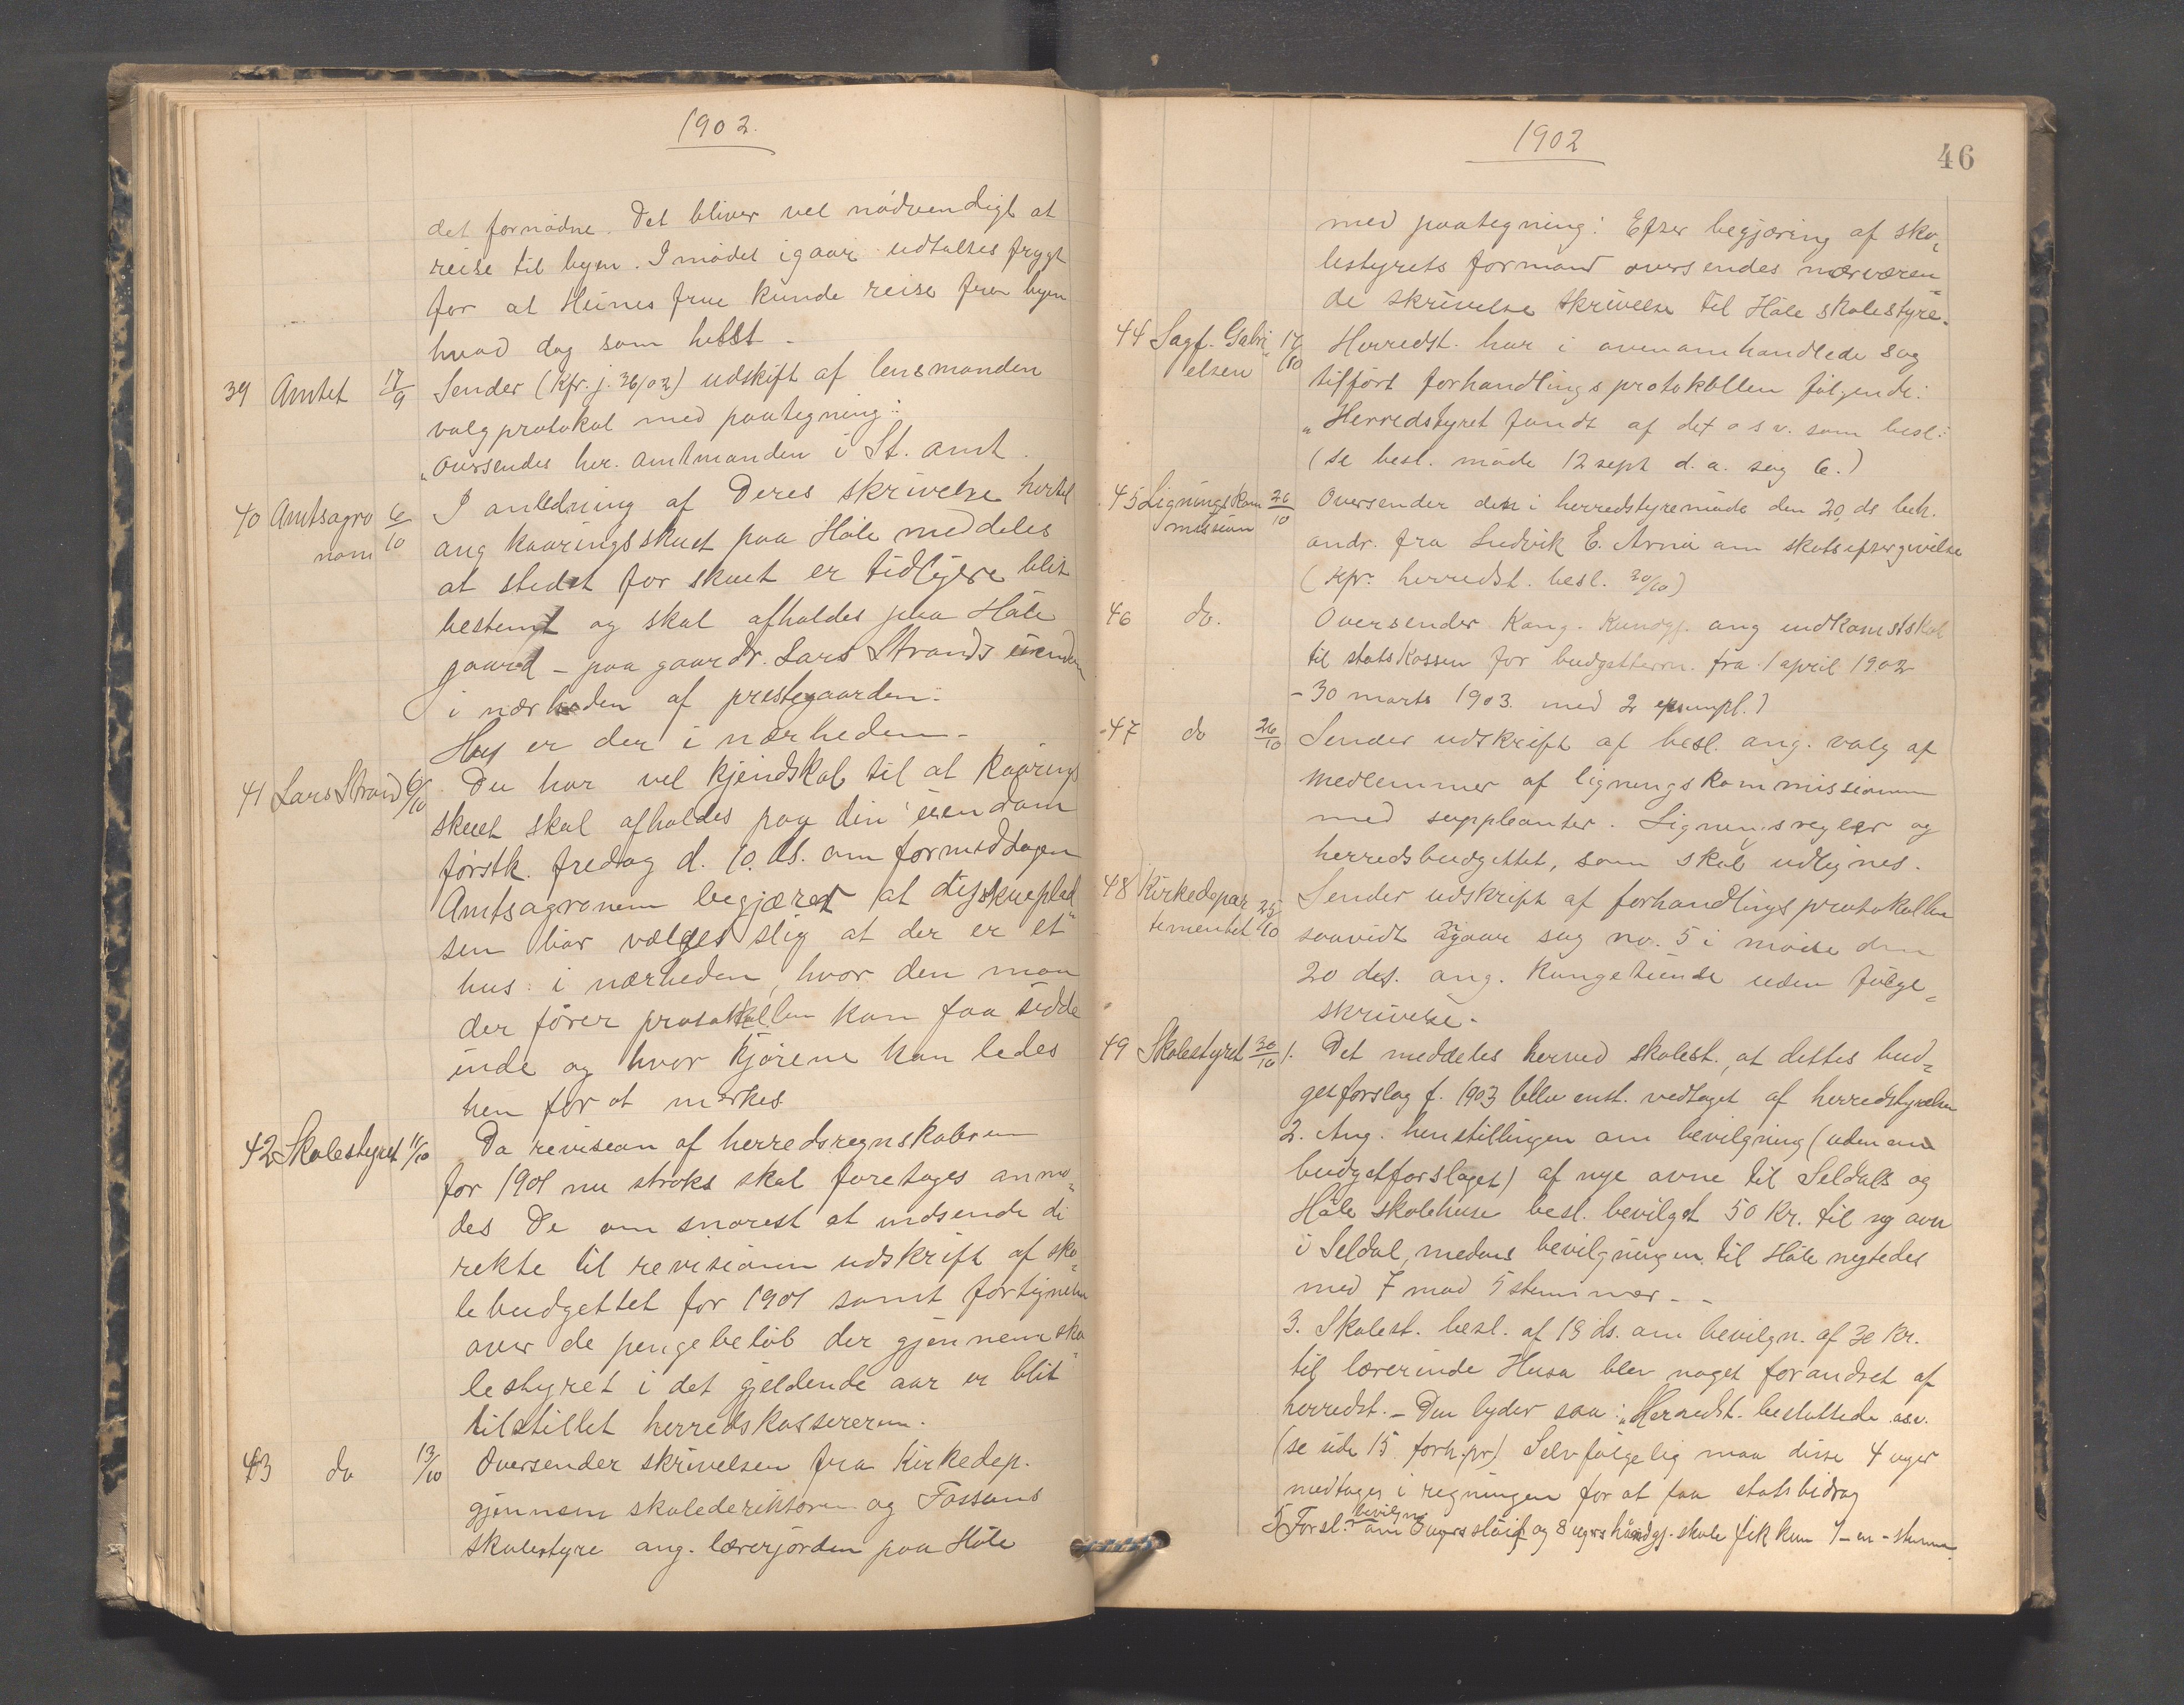 1902.
det fornødne. Det bliver vel nødvendigt at
reise til byen. I mødet igaar udtaltes frygt
for at Heines frue kunde reise fra byen
hvad dag som helst.
39 Amtet 17/9 Sender (kfr. j. 36/02) udskift af lensmanden
valgprotokol med paategning:
"Oversendes hr. amtmanden i St. amt.
40 Amtsagro 6/10 I anledning af Deres skrivelse hertil
nom ang kaaringsskuet paa Høle meddeles
at stedet for skuet er tidligere blit
bestemt og skal afholdes paa Høle
gaard - paa gaardbr. Lars Strands eiendom
i nærheden af prestegaarden.
Hus er der i nærheden.
41 Lars Strand 6/10 Du har vel kjendskab til at kaarings
skuet skal afholdes paa din eiendom
førstk. fredag d. 10. ds. om formiddagen
Amtsagronom begjæret at dyrskueplad
sen bør vælges slig at der er et
hus i nærheden, hvor den man
der fører protokollen kan faa sidde
inde og hvor kjørene kan ledes
hen for at mærkes
42 Skolestyret 11/10 Da revision af herredsregnskaberne
for 1901 nu straks skal foretages anmo
des De om snarest at indsende di
rekte til revisionen udskrift af sko
lebudgettet for 1901 samt fortegnelse
over de pengebeløb der gjennem sko
lestyret i det gjeldende aar er blit
tilstillet herredskassereren.
43 do 13/10 Oversender skrivelsen fra Kirkedep.
gjennem skolederiktøren og Fossans
skolestyre ang. lærerjorden paa Høle
1902
46
med paategning: Efter begjæring af sko
lestyrets formand oversendes nærværen
de skrivelse skrivelse til Høle skolestyre.
44 Sagf. Gabri 17/10 Herredst. har i ovenomhandlede sag
elsen tilført forhandlingsprotokollen følgende:
"Herredstyret fandt af det o s v. som besl:
(se besl. møde 12 sept d. a. sag 6.)
45 Ligningskom 26/10 Oversender den i herredstyremøde den 20, ds beh.
mission andr. fra Ludvik E. Arnø om skatseftergivelse
(kfr. herredst. besl. 20/10)
46 do. Oversender Kong. Kundgj. ang indkomstskat
til statskassen for budgetterm. fra 1 april 1902
- 30 marts 1903 med 2 exempl.)
47 do 26/10 Sender udskrift af besl. ang. valg af
medlemmer af ligningskommissionen
med suppleanter. Ligningsregler og
herredsbudgettet, som skal udlignes.
48 Kirkedepar 25/10 Sender udskrift af forhandlingsprotokollen
tementet saavidt angaar sag no. 5 i møde den
20 ds. ang. kongetiende uden følge
skrivelse.
49 Skolestyret 30/10 1. Det meddeles herved skolest., at dettes bud
getforslag f. 1903 blev enst. vedtaget af herredstyrelsen
2. Ang. henstillingen om bevilgning (udenom
budgetforslaget) af nye ovne til Seldals og
Høle skolehuse besl. bevilget 50 kr. til ny ovn
i Seldal, medens bevilgningen til Høle negtedes
med 7 mod 5 stemmer. -
3. Skolest. besl. af 18 ds. om bevilgn. af 30 kr.
til lærerinde Husa blev noget forandret af
herredst. - Den lyder saa: "Herredst. besluttede osv.
(se side 15 forh.pr) Selvfølgelig maa disse 4 uger
medtages i regningen for at faa statsbidrag
5 Forsl. om bevilgn. 6 ugers sløif og 8 ugers håndgj. skole fik kun 1 - en - stemme.